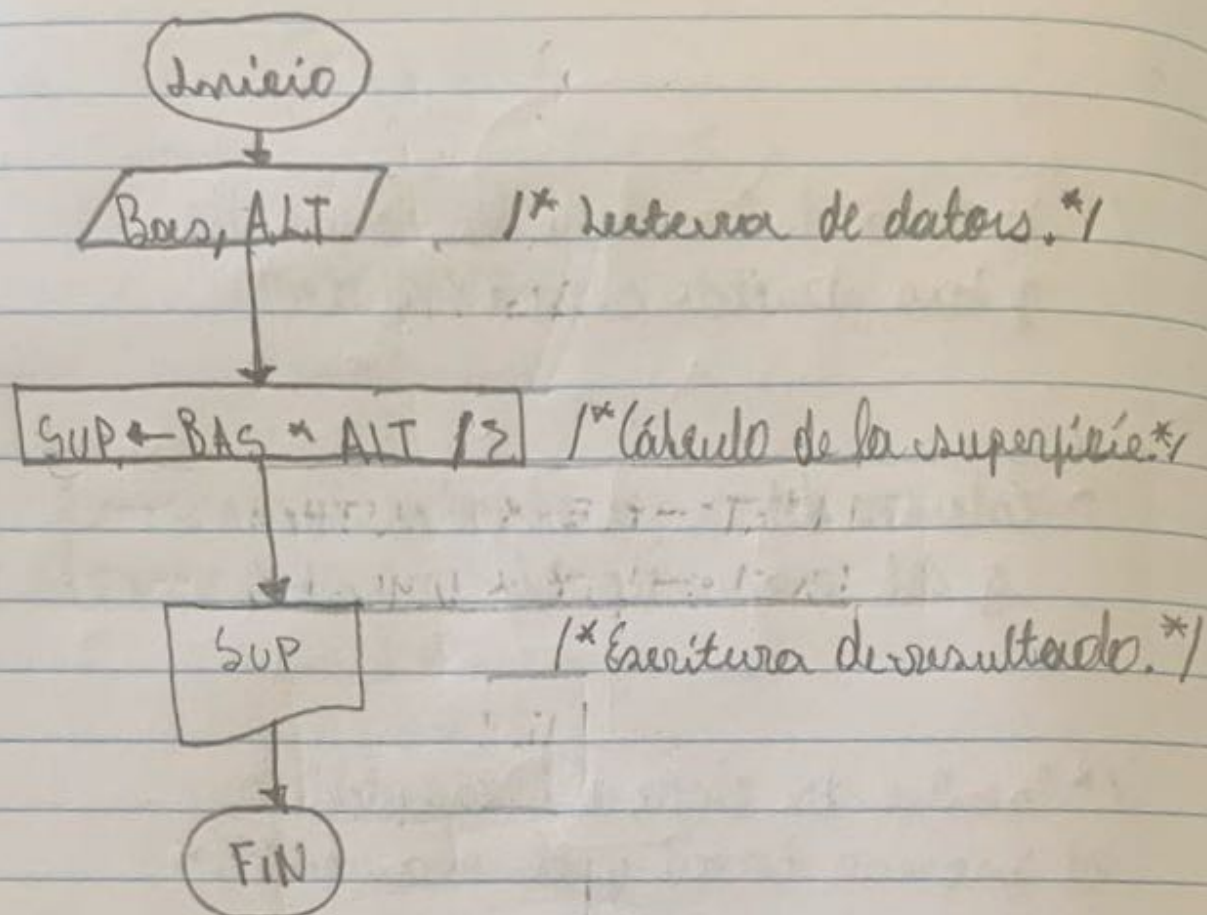 Inicio
Bas, ALT /* Lectura de datos. */
SUP ← BAS * ALT / 2 /* Cálculo de la superficie. */
SUP /* Escritura de resultado. */
FIN